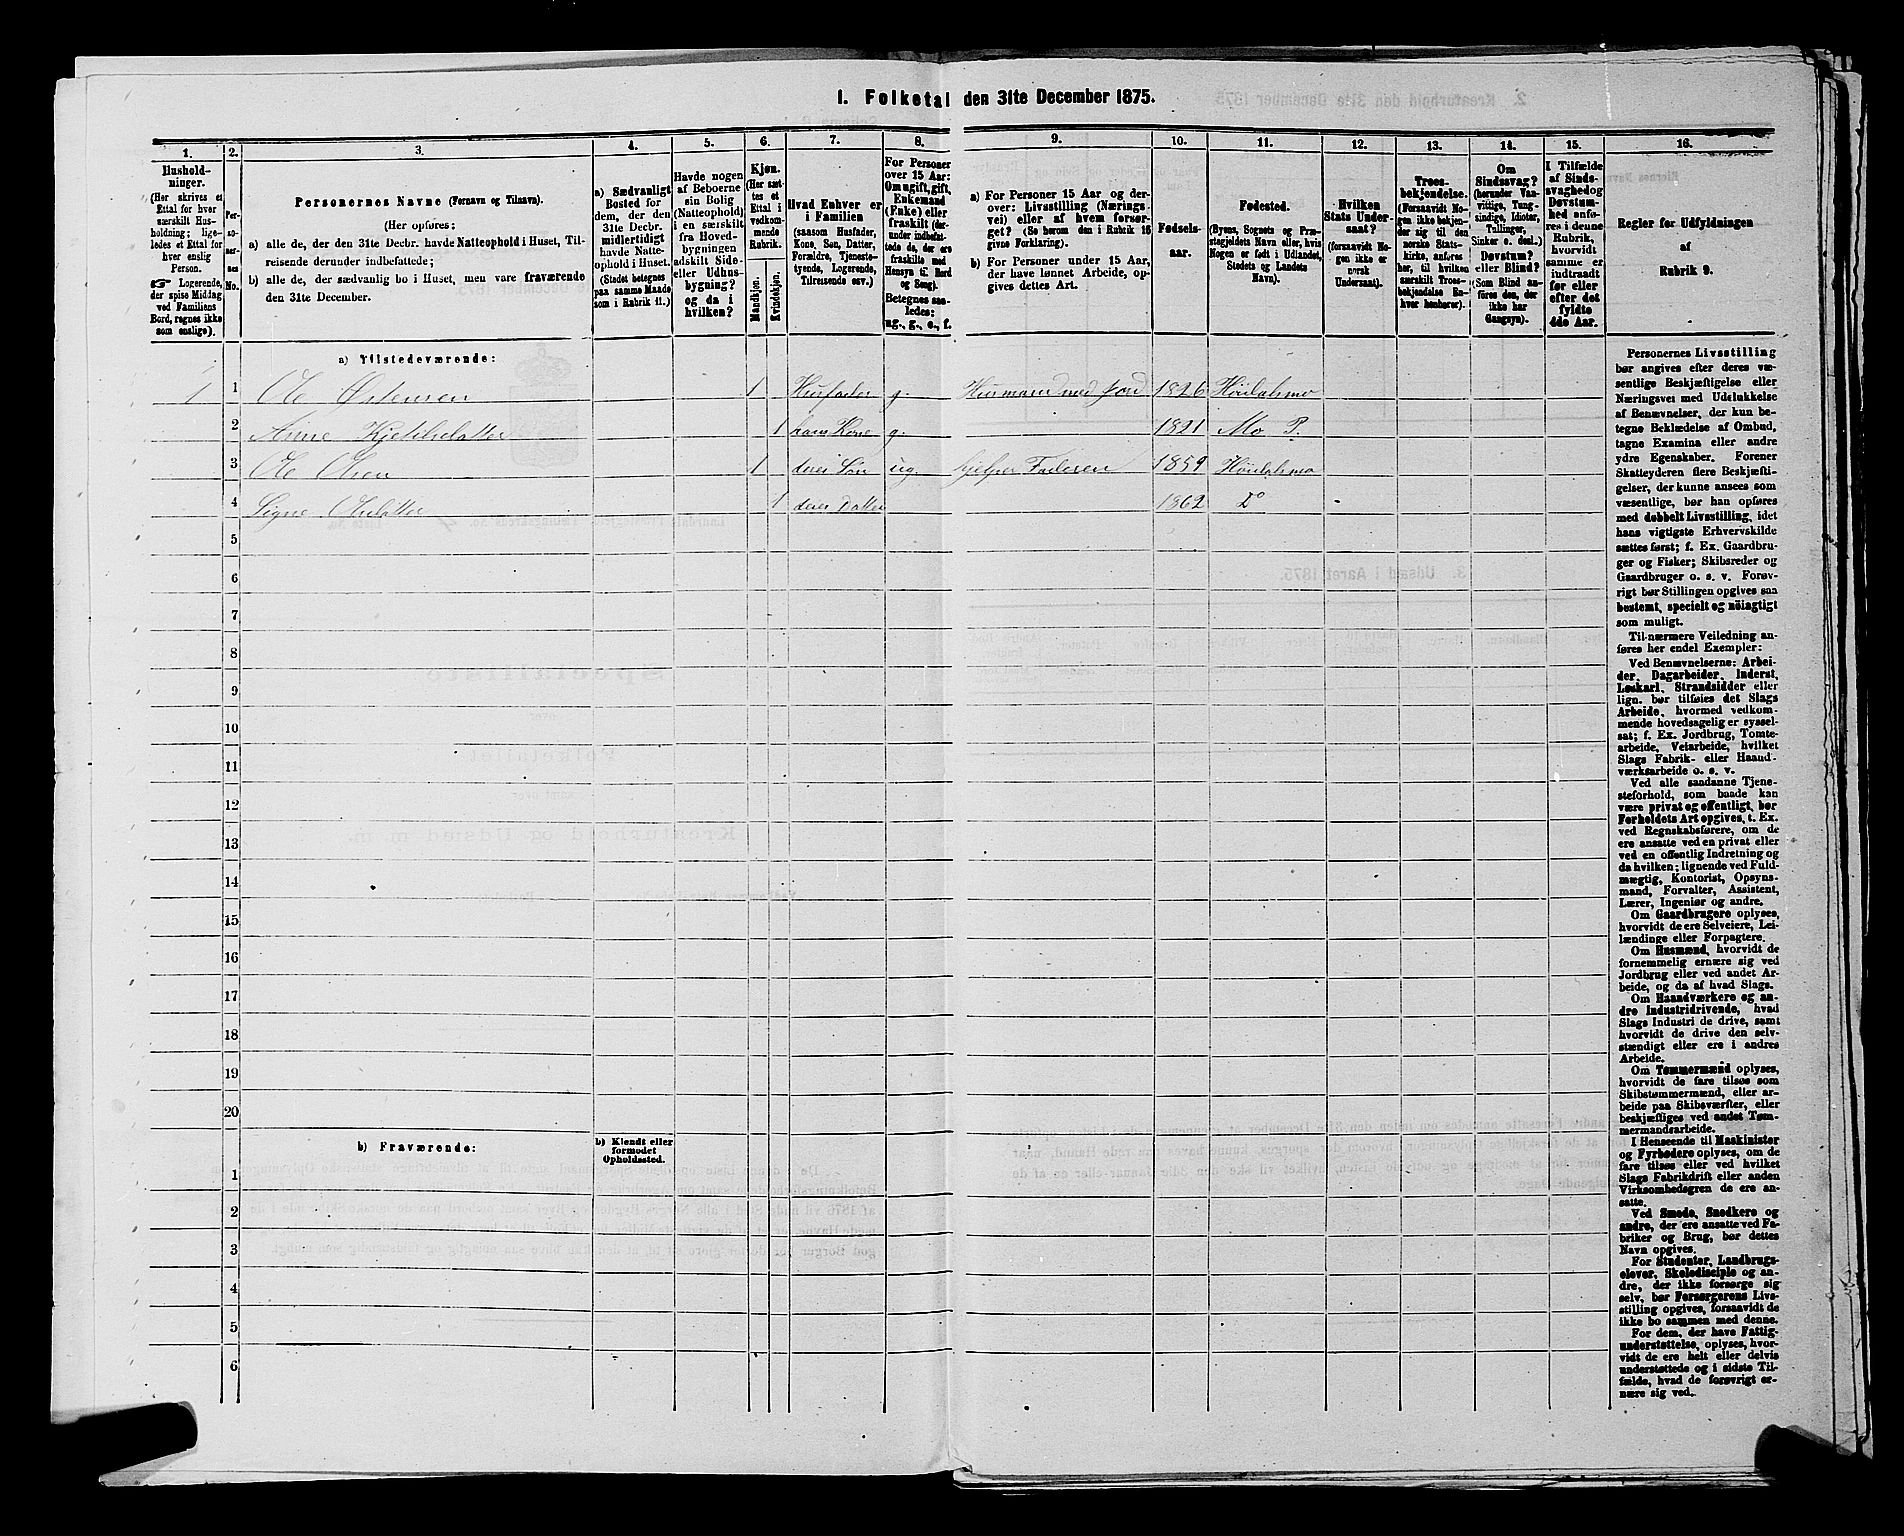 1. Folketal den 31te December 1875.
1. 2. 3. 4. 5. 6. 7. 8. 9. 10. 11. 12. 13. 14. 15. 16.
Husholdninger.
(Her skrives et
Ettal for hver
særskilt Hus-
holdning; lige-
ledes et Ettal for
hver enslig
Person.
☞ Logerende,
der spise Middag
ved Familiens
Bord, regnes ikke
som enslige).
Per-
so-
ner-
nes
No.
Personernes Navne (Fornavn og Tilnavn).
(Her opføres:
a) alle de, der den 31te Decbr. havde Natteophold i Huset, Til-
reisende derunder indbefattede;
b) alle de, der sædvanlig bo i Huset, men vare fraværende
den 31te December.
a) Sædvanligt
Bosted for
dem, der den
31te Decbr.
midlertidigt
havde Natte-
ophold i Huset.
(Stedet betegnes
paa samme Maade
som i Rubrik 11.)
Havde nogen
af Beboerne
sin Bolig
(Natteophold)
i en særskilt
fra Hoved-
bygningen
adskilt Side-
eller Udhus-
bygning?
og da i
hvilken?
Kjøn.
(Her sæt-
tes et
Ettal i
vedkom-
mende
Rubrik.
Mandkjøn.
Kvindekjøn.
Hvad Enhver er
i Familien
(saasom Husfader,
Kone, Søn, Datter,
Forældre, Tjeneste-
tyende, Logerende,
Tilreisende osv.)
For Personer
over 15 Aar:
Om ugift, gift,
Enkemand
(Enke) eller
fraskilt (der-
under indbefat-
tede de, der ere
fraskilte med
Hensyn til Bord
og Seng).
Betegnes saa-
ledes:
ug., g., e., f.
a) For Personer 15 Aar og der-
over: Livsstilling (Nærings
vei) eller af hvem forsør-
get? (Se herom den i Rubrik 16
givne Forklaring).
b) For Personer under 15 Aar,
der have lønnet Arbeide, op-
gives dettes Art.
Fødsels-
aar.
Fødested.
(Byens, Sognets og Præ-
stegjeldets Navn eller, hvis
Nogen er født i Udlandet,
Stedets og Landets
Navn).
Hvilken
Stats Under-
saat?
(forsaavidt No-
gen ikke er
norsk
Undersaat).
Troes-
bekjendelse.
(Forsaavidt No-
gen ikke bekjen-
der sig til den
norske Stats-
kirke, anføres
her, til hvilken
særskilt Troes-
bekjendelse En-
hver henhører).
Om
Sindssvag?
(herunder Van-
vittige, Tung-
sindige, Idioter,
Tullinger,
Sinker o. desl.)
Døvstum?
eller Blind?
(Som Blind an-
føres den, der
ikke har
Gangsyn).
I Tilfælde
af Sinds-
svaghed og
Døvstum-
hed anfø-
res i denne
Rubrik,
hvorvidt
samme er
indtraadt
før eller
efter det
fyldte
4de Aar.
Regler for Udfyldningen
af
Rubrik 9.
a) Tilstedeværende:
1 1 Ole Østensen 1 Husfader g. Husmand med Jord 1826 Høidalsmo
2 Anne Kjetilsdatter 1 hans Kone g. 1821 Mo P.
3 Ole Olsen 1 deres Søn ug. hjelper Faderen 1859 Høidalsmo
4 Signe Olsdatter 1 deres Datter 1862 Do
5
6
7
8
9
10
11
12
13
14
15
16
17
18
19
20
b) Fraværende:
b) Kjendt eller
formodet
Opholdssted.
1
2
3
4
5
6
Personernes Livsstilling
bør angives efter deres væ-
sentlige Beskjæftigelse eller
Næringsvei med Udelukkelse
af Benævnelser, der kun be-
tegne Beklædelse af Ombud,
tagne Examina eller andre
ydre Egenskaber. Forener
Skatteyderen flere Beskjæfti-
gelser, der kunne ansees som
væsentlige, bør han opføres
med dobbelt Livsstilling, idet
hans vigtigste Erhvervskilde
sættes først; f. Ex. Gaardbru-
ger og Fisker; Skibsreder og
Gaardbruger o. s. v. Forøv-
rigt bør Stillingen opgives saa
bestemt, specielt og nöiagtigt
som muligt.
Til nærmere Veiledning an-
føres her endel Exempler:
Ved Benævnelserne: Arbei-
der, Dagarbeider, Inderst,
Løskarl, Strandsidder eller
lign. bør tilføies det Slags
Arbeide, hvormed vedkom-
mende hovedsagelig er syssel-
sat; f. Ex. Jordbrug, Tomte-
arbeide, Veiarbeide, hvilket
Slags Fabrik- eller Haand-
værksarbeide o. s. v.
Ved alle saadanne Tjene-
steforhold, som baade kan
være privat og offentligt, bør
Forholdets Art opgives, t. Ex.
ved Regnskabsførere, om de
ere ansatte ved en privat eller
ved en offentlig Indretning og
da hvilken; lignende ved Fuld-
mægtig, Kontorist, Opsyns-
mand, Forvalter, Assistent,
Lærer, Ingeniør og andre.
Om Gaardbrugere oplyses,
hvorvidt de ere Selveiere, Lei-
lændinge eller Forpagtere.
Om Husmænd, hvorvidt de
fornemmelig ernære sig ved
Jordbrug eller ved andet Ar-
beide, og da af hvad Slags.
Om Haandværkere og an-
dre Industridrivende, hvad
Slags Industri de drive, samt
hvorvidt de drive den selv-
stændigt eller ere i andres
Arbeide.
Om Tømmermænd oplyses,
hvorvidt de fare tilsøs som
Skibstømmermænd, eller ar-
beide paa Skibsværfter, eller
beskjæftiges ved andet Tøm-
mermandsarbeide.
I Henseende til Maskinister
og Fyrbødere oplyses, om de
fare tilsøs eller ved hvilket
Slags Fabrikdrift eller anden
Virksomhedsgren de ere an-
satte.
Ved Smede, Snedkere og
andre, der ere ansatte ved Fa-
briker og Brug, bør dettes
Navn opgives.
For Studenter, Landbrugs-
elever, Skoledisciple og an-
dre, der ikke forsørge sig
selv, bør Forsørgerens Livs-
stilling opgives, forsaavidt de
ikke bo sammen med denne.
For dem, der have Fattig-
understøttelse, oplyses, hvor-
vidt de ere helt eller delvis
understøttede og i sidste Til-
fælde, hvad de forøvrigt er-
nære sig ved.